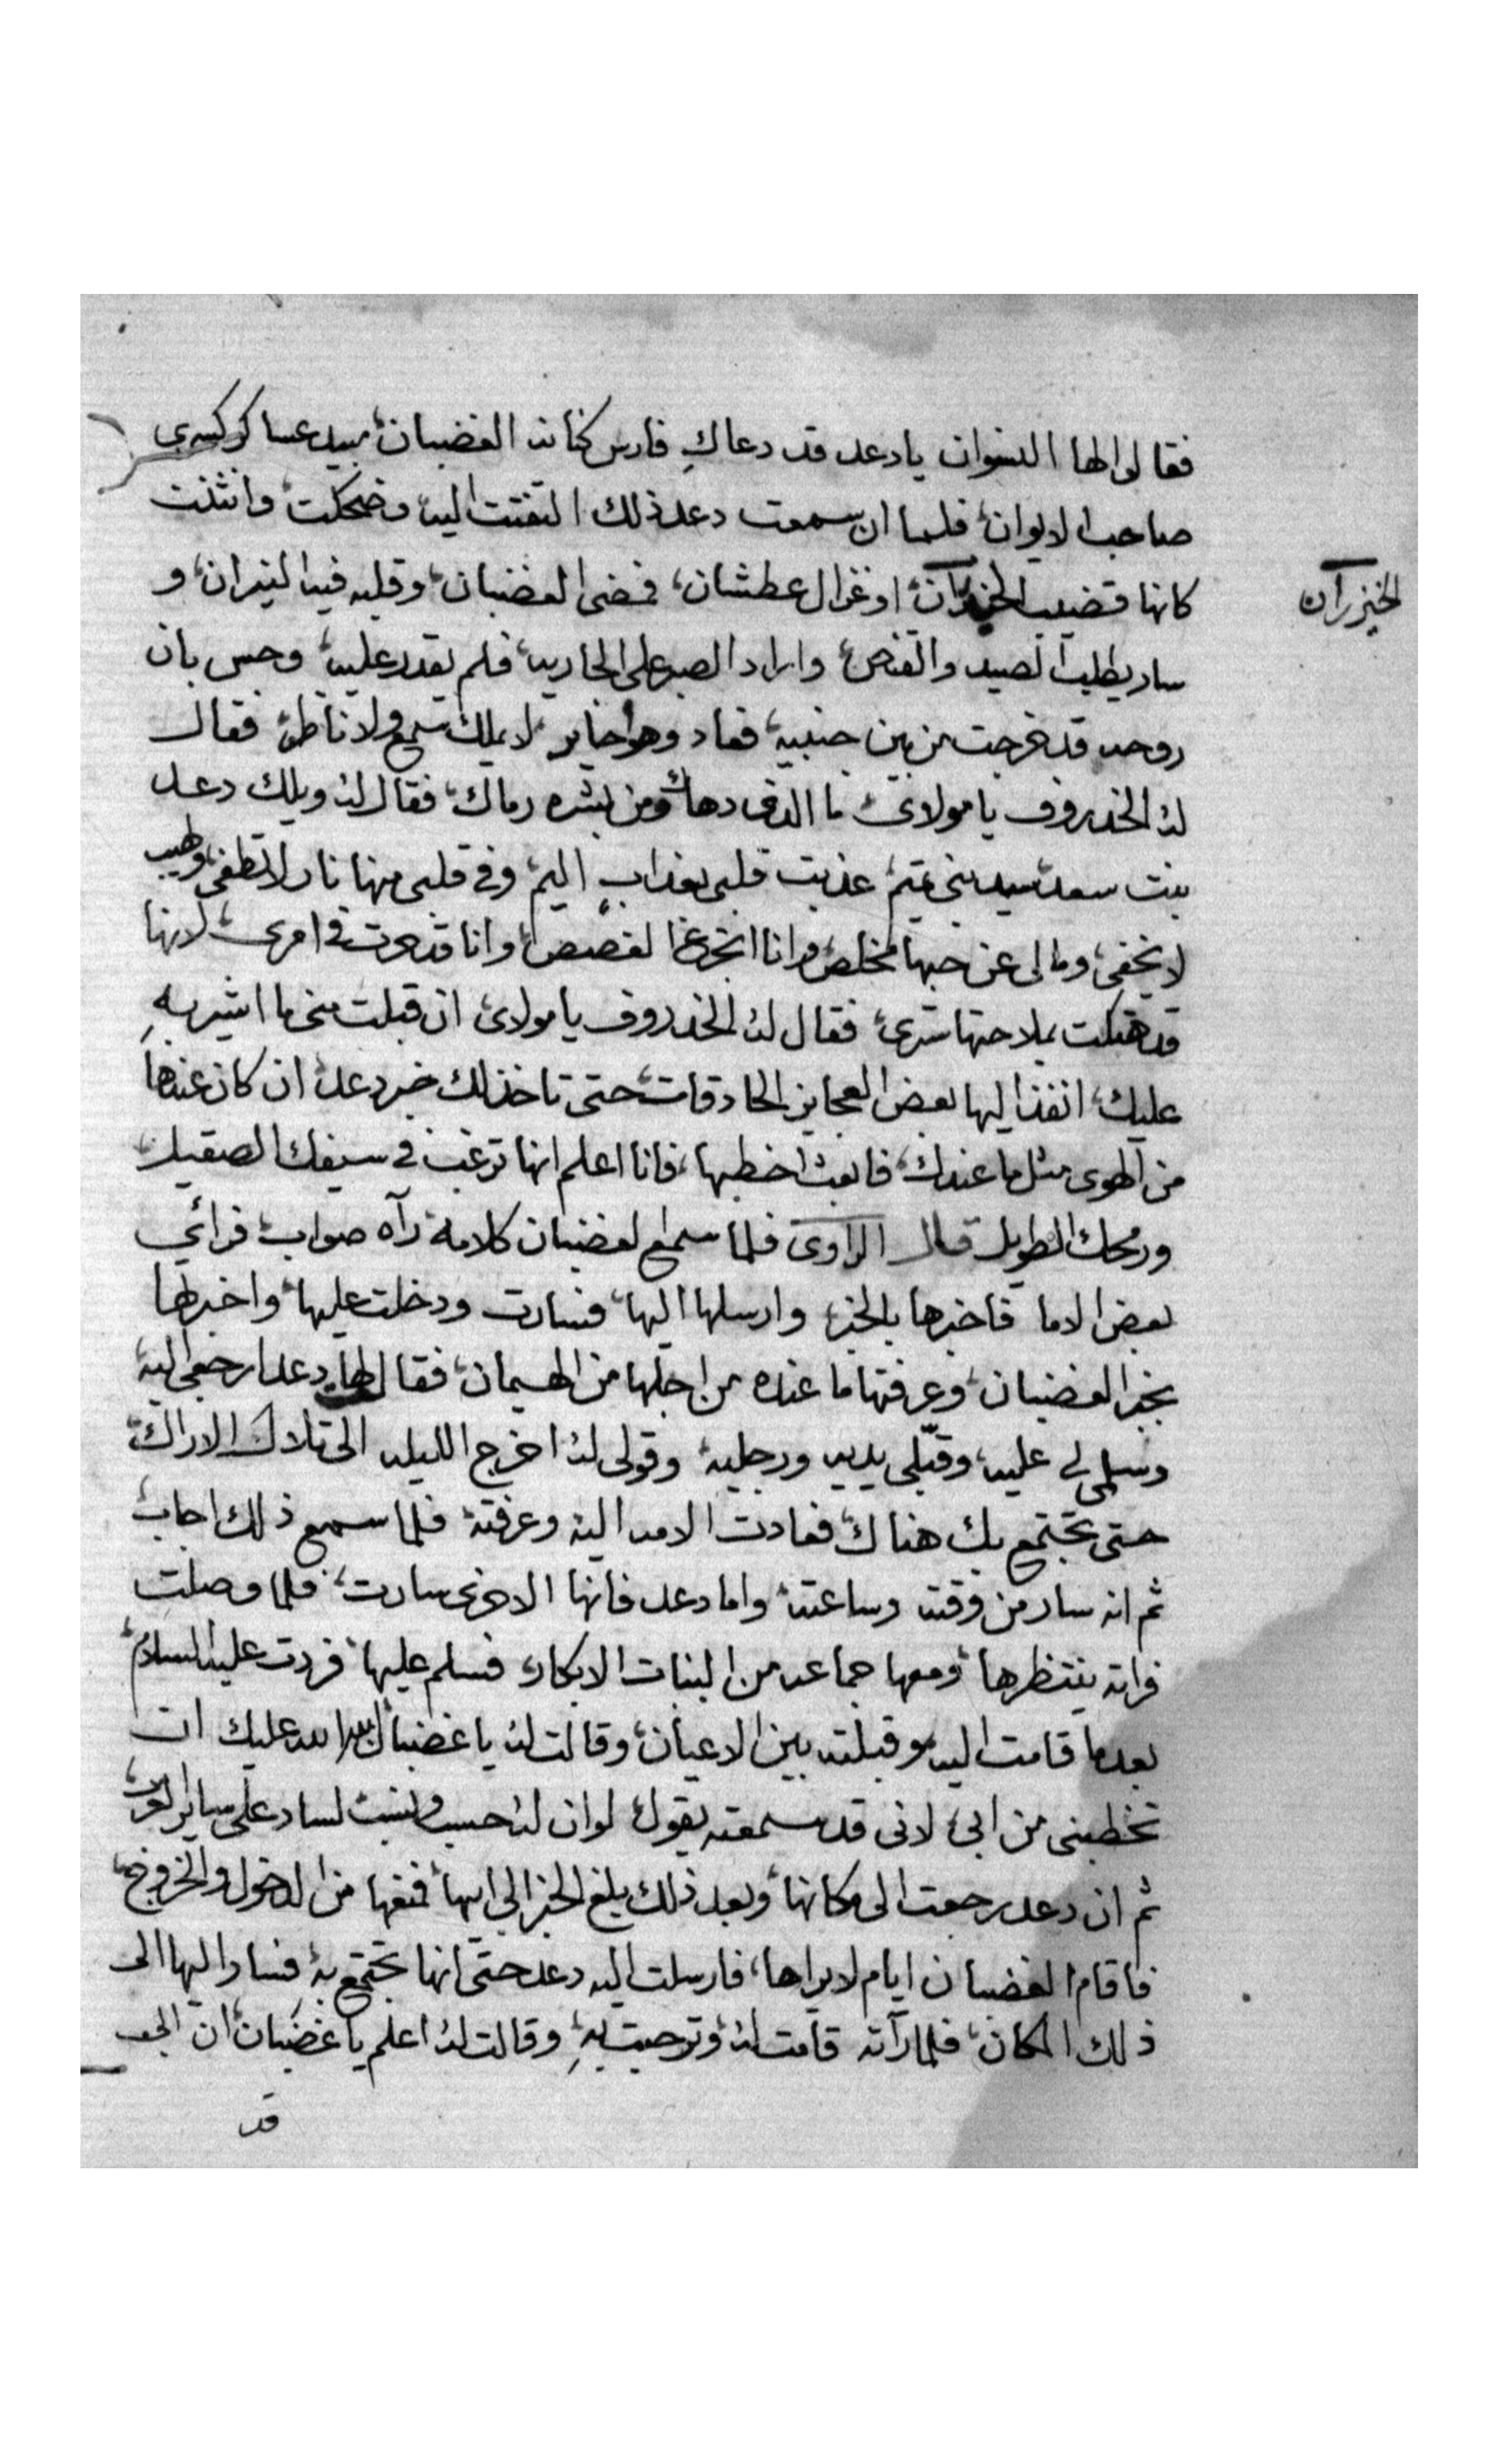 فقالوا لها النسوان يا دعد قد دعاكِ فارس كنانه الغضبان، مبيد عساكر كسرى
صاحب الايوان، فلما ان سمعت دعد ذلك التفتت اليه، وضحكت، وانثنت
كانها قضيب الخيزران، او غزال عطشان، فمضى الغضبان، وقلبه فيه النيران، و
الخيزران
سار يطلب الصيد والقنص، واراد الصبر على الجاريه، فلم يقدر عليه، وحس بان
روحه قد خرجت من بين جنبيه، فعاد وهو حاير لا يملك سمع ولا ناظر، فقال
له الخدروف يا مولاى ما الذى دهاك، ومن بشره رماك، فقال له ويلك دعد
بنت سعد سيد بنى تميم، عذبت قلبى بعذابٍ اليم، وفى قلبى منها نار لا تطفى، ولهيب
لا يخفى، ومالى عن حبها مخلص، وانا اتجرع الغصص، وانا قد حرت فى امرى، لانها
قد هتكت بملاحتها سترى، فقال له الخدروف يا مولاى ان قبلت منى ما اشير بهِ
عليك، انفذ اليها بعض العجايز الحادقات، حتى تاخذ لك خبر دعد، ان كان عندها
من الهوى مثل ما عندك، فابعث اخطبها، فانا اعلم انها ترغب فى سيفك الصقيل
ورمحك الطويل قال الراوى فلما سمع الغضبان كلامه رآه صواب، فرائي
بعض الاما فاخبرها بالخبر، وارسلها اليها، فسارت ودخلت عليها، واخبرتها
بخبر الغضبان، وعرفتها ما عنده من اجلها من الهيمان، فقال لها دعد ارجعى اليه،
وسلمى لى عليه، وقبّلى يديه ورجليه، وقولى له اخرج الليله الى تلاك الاراك
حتى تجتمع بك هناك، فعادت الامه اليه وعرفته، فلما سمع ذلك اجاب،
ثم انه سار من وقته وساعته، واما دعد فانها الاخرى سارت، فلما وصلت
فراته ينتظرها، ومعها جماعه من البنات الابكار، فسلم عليها، فردت عليه السلام،
بعدما قامت اليه وقبلته بين الاعيان، وقالت له يا غضبان عليك ان
تخطبنى من ابى، لانى قد سمعته يقول لو ان له حسب ونسب لساد على ساير العرب،
ثم ان دعد رجعت الى مكانها، وبعد ذلك بلغ الخبر الى ابيها، فمنعها من الدخول والخروج،
فاقام الغضبان ايام لا يراها، فارسلت اليه دعد حتى انها تجتمع به، فسار اليها الى
ذلك المكان، فلما رآته قامت له، وترحبت بهِ، وقالت له اعلم يا غضبان، ان
قد